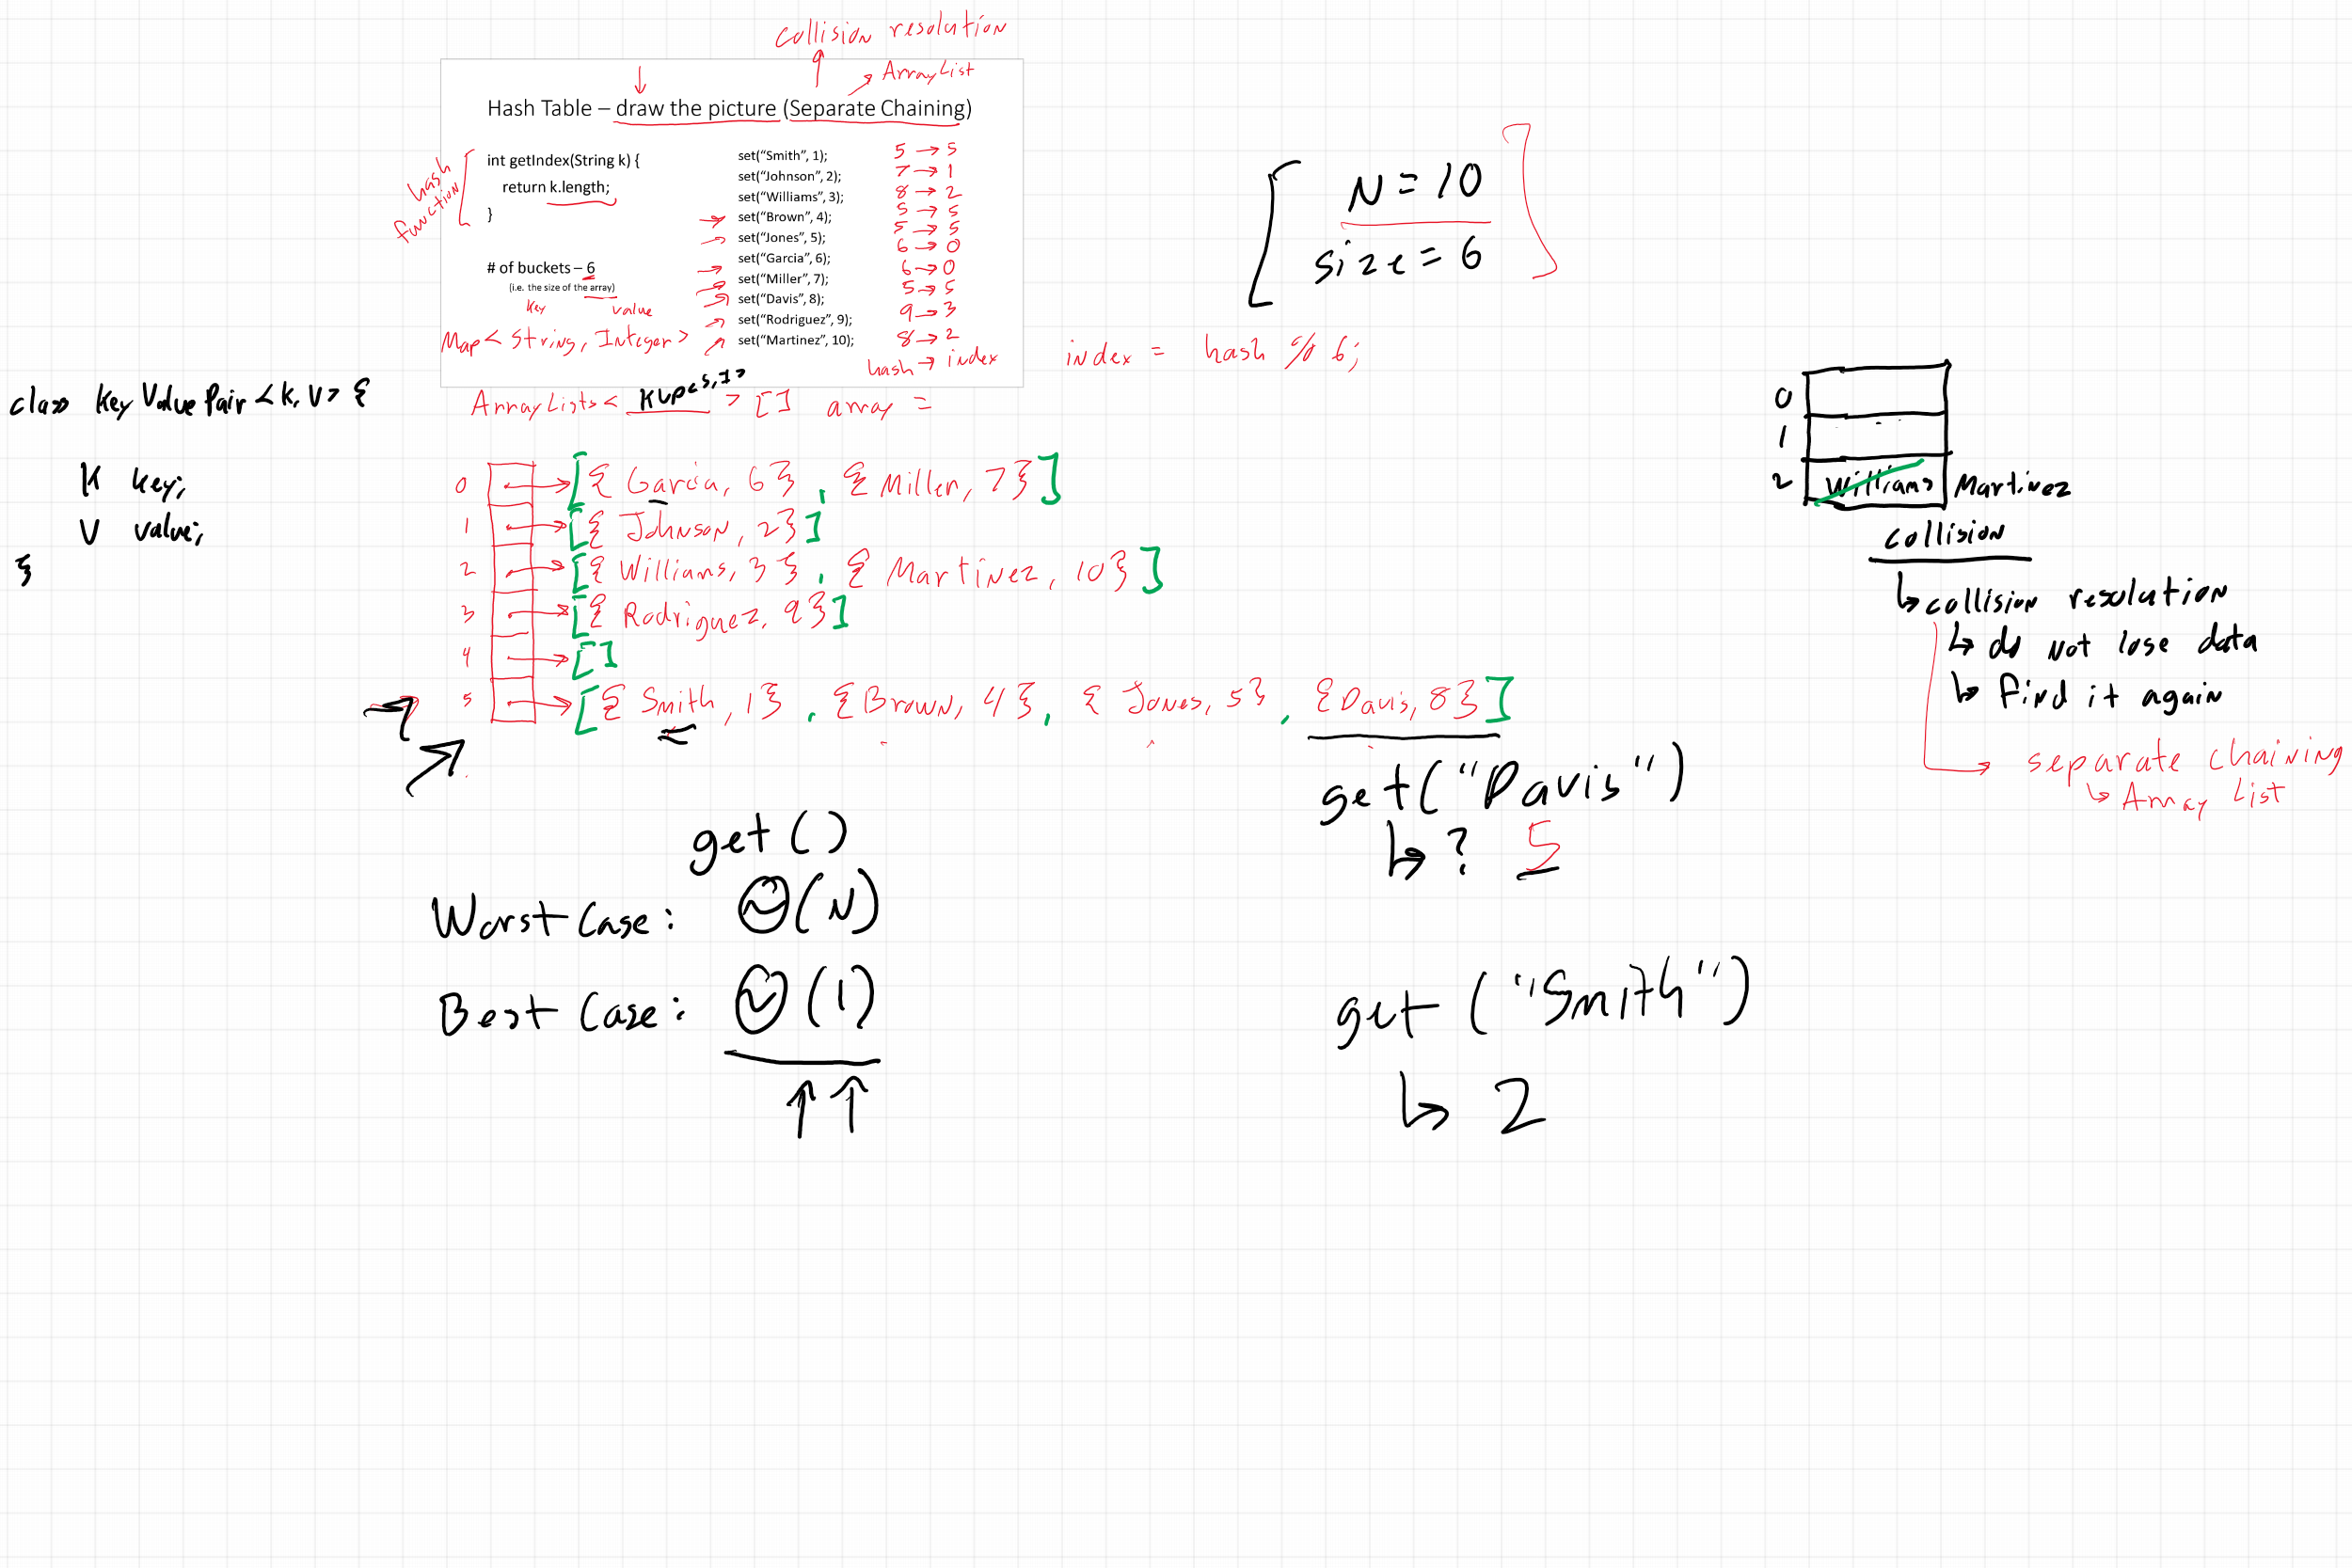 collision resolution
ArrayList
Hash Table – draw the picture (Separate Chaining)
hash
function
int getIndex(String k) {
return k.length;
}
# of buckets – 6
(i.e. the size of the array)
key value
Map < String, Integer >
set("Smith", 1); 5 → 5
set("Johnson", 2); 7 → 1
set("Williams", 3); 8 → 2
set("Brown", 4); 5 → 5
set("Jones", 5); 5 → 5
set("Garcia", 6); 6 → 0
set("Miller", 7); 6 → 0
set("Davis", 8); 5 → 5
set("Rodriguez", 9); 9 → 3
set("Martinez", 10); 8 → 2
hash → index
N = 10
size = 6
index = hash % 6;
class KeyValuePair <K,V> {
K key;
V value;
}
ArrayLists < KVP<S,I> > [] array =
0 [{ Garcia, 6} , { Miller, 7}]
1 [{ Johnson, 2}]
2 [{ Williams, 3 } , { Martinez, 10}]
3 [{ Rodriguez, 9}]
4 []
5 [{ Smith, 1} , {Brown, 4} , { Jones, 5} , {Davis, 8}]
0
1
2 Williams Martinez
collision
↳ collision resolution
↳ do not lose data
↳ find it again
→ separate chaining
↳ Array List
get("Davis")
↳ ? 5
get()
Worst Case: (N)
Best Case: (1)
get ("Smith")
↳ 2